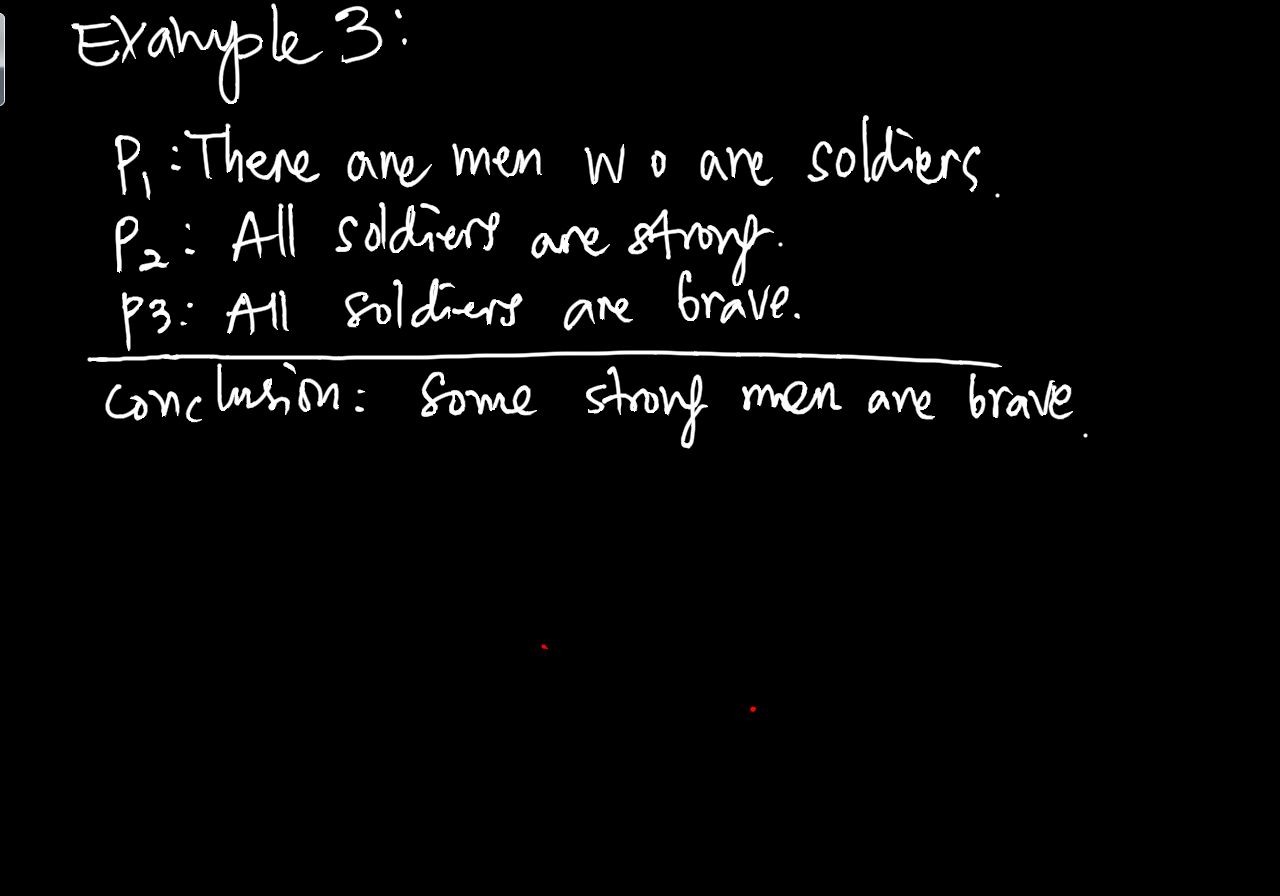 Example 3:
P1: There are men w o are soldiers.
P2: All soldiers are strong.
P3: All soldiers are brave.
conclusion: Some strong men are brave.